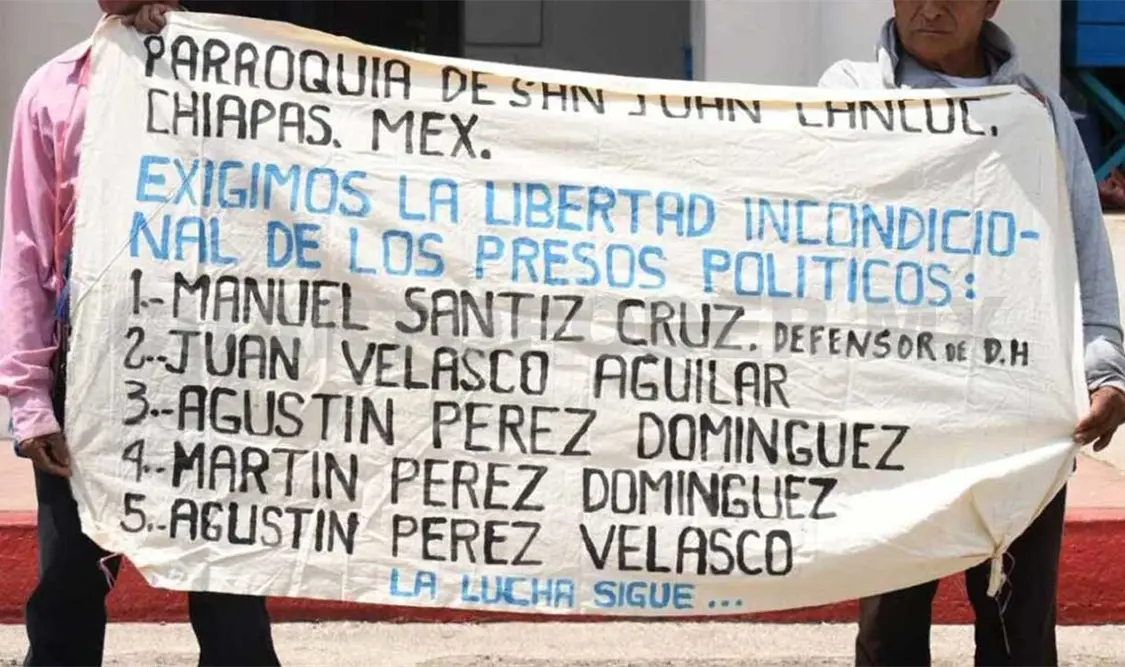 PARROQUIA DE SAN JUAN CANCUC,
CHIAPAS. MEX.
EXIGIMOS LA LIBERTAD INCONDICIO-
NAL DE LOS PRESOS POLITICOS:
1.-MANUEL SANTIZ CRUZ. DEFENSOR DE D.H
2.-JUAN VELASCO AGUILAR
3.-AGUSTIN PEREZ DOMINGUEZ
4.-MARTIN PEREZ DOMINGUEZ
5.-AGUSTIN PEREZ VELASCO
LA LUCHA SIGUE ...